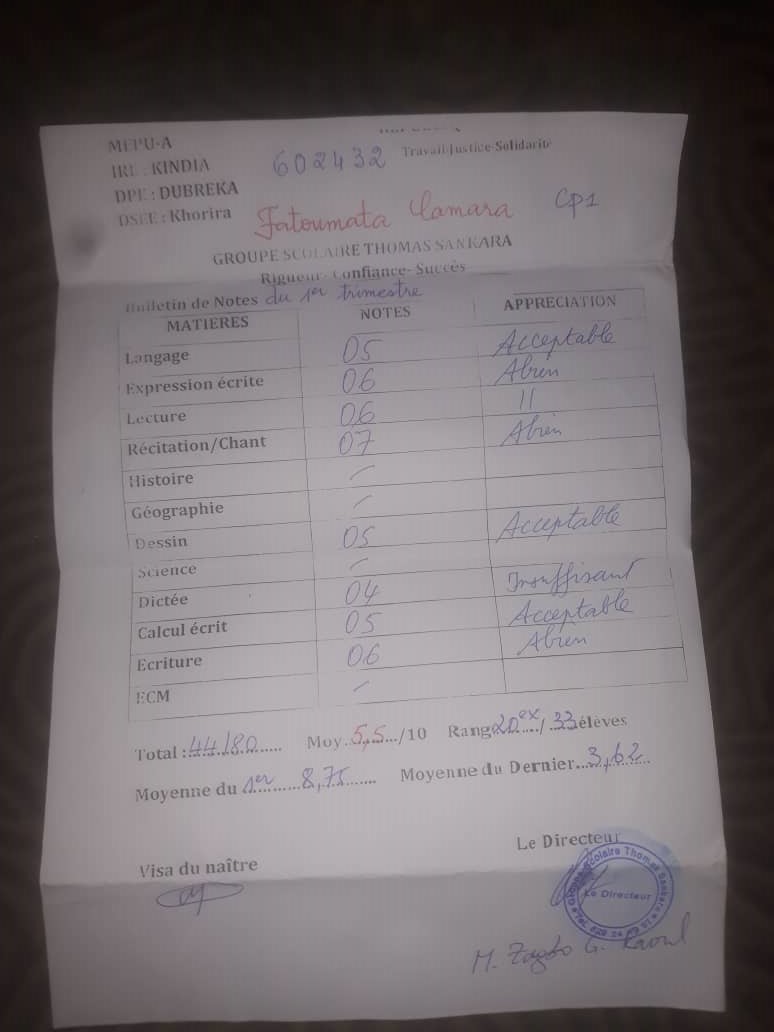 MEPU-A
IRE : KINDIA 602432 Travail-Justice-Solidarité
DPE : DUBREKA
DSEE : Khorira Fatoumata Camara CP1
GROUPE SCOLAIRE THOMAS SANKARA
Rigueur- Confiance- Succès
Bulletin de Notes du 1er trimestre
MATIERES NOTES APPRECIATION
Langage 05 Acceptable
Expression écrite 06 Abien
Lecture 06 //
Récitation/Chant 07 Abien
Histoire /
Géographie /
Dessin 05 Acceptable
Science /
Dictée 04 Insuffisant
Calcul écrit 05 Acceptable
Ecriture 06 Abien
ECM /
Total : 44/80 Moy. 5,5 /10 Rang 20ex / 33 élèves
Moyenne du 1er 8,75 Moyenne du Dernier 3,62
Le Directeur
Visa du naître
Groupe Scolaire Thomas Sankara
Le Directeur
M. G. Raoul